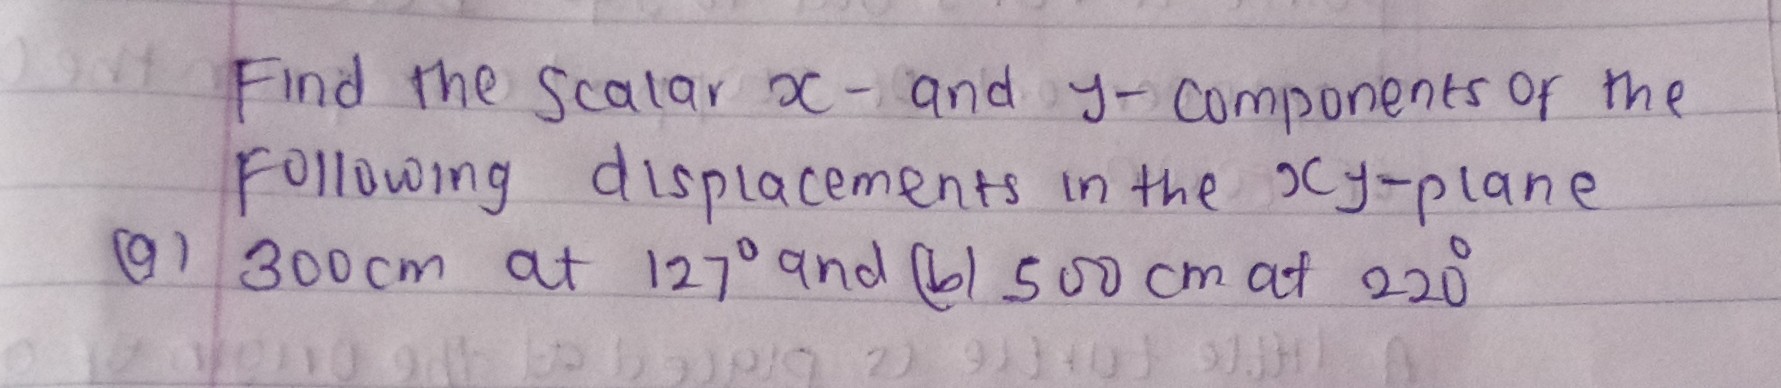 Find the scalar x- and y- components of the
Following displacements in the xy-plane
(a) 300cm at 127° and (b) 500 cm at 220°